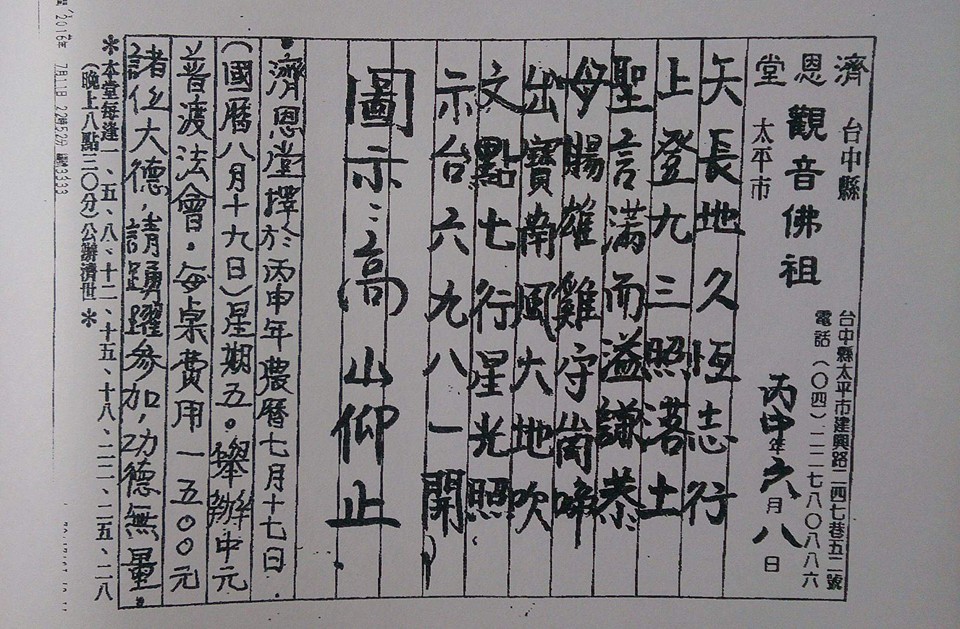 濟恩堂
台中縣太平市
觀音佛祖
台中縣太平市建興路二四七巷五二號
電話（〇四）二二七八〇八八六
丙申年六月八日
矢長地久恆志行
上登九三照落土
聖言滿而溢謙恭
母賜雄雞守崗啼
出寶南風大地吹
文點七行星光照
示台六九八一開
圖示：高山仰止
濟恩堂擇於丙申年農曆七月十七日
（國曆八月十九日）星期五。舉辦中元
普渡法會。每桌費用一五〇〇元
諸位大德，請踴躍參加，功德無量。
＊本堂每逢一、五、八、十二、十五、十八、二二、二五、二八
（晚上八點三〇分）公辦濟世＊
2016年 7月11日 22時52分